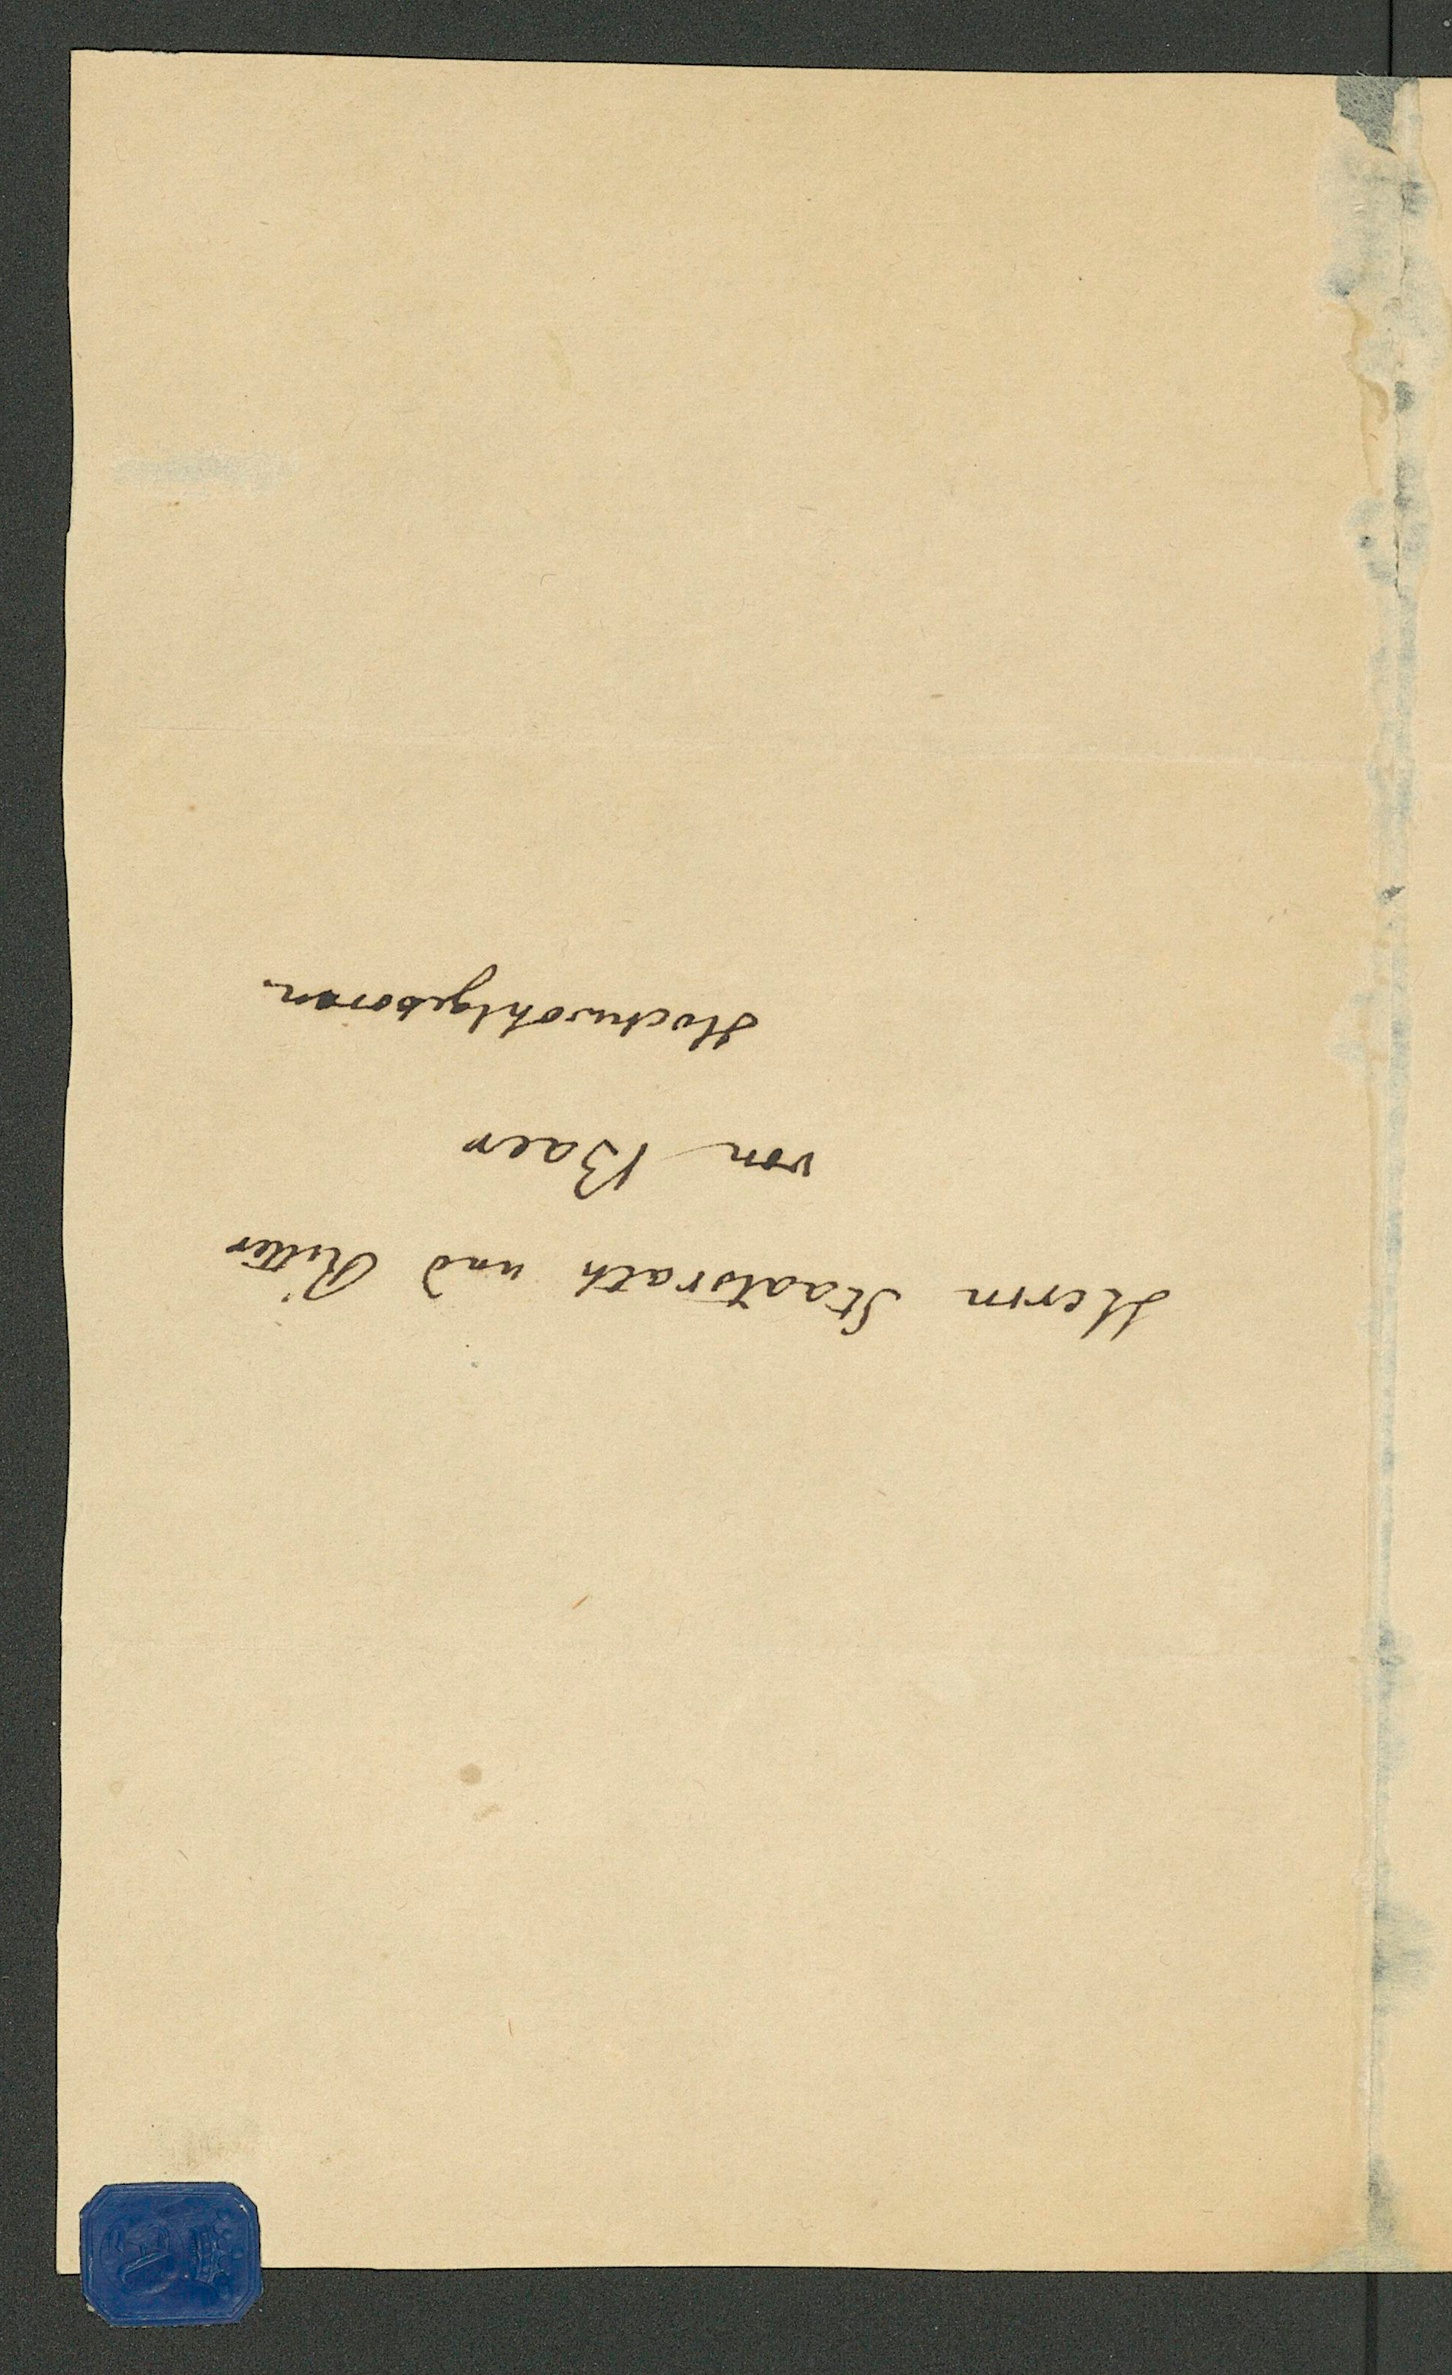 Herrn Staatsrath und Ritter
von Baer
Hochwohlgeboren.